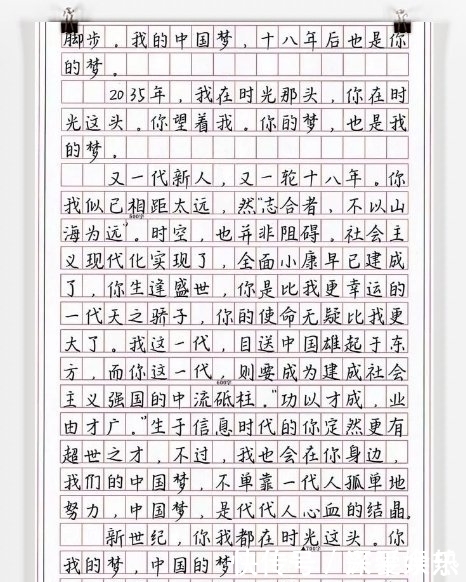 脚步。我的中国梦，十八年后也是你
的梦。
2035年，我在时光那头，你在时
光这头。你望着我。你的梦，也是我
的梦。
又一代新人，又一轮十八年。你
我似已相距太远，然“志合者，不以山
500字
海为远”。时空，也并非阻碍。社会主
义现代化实现了，全面小康早已建成
了，你生逢盛世，你是比我更幸运的
一代天之骄子，你的使命无疑比我更
大了。我这一代，目送中国雄起于东
方，而你这一代，则要成为建成社会
600字
主义强国的中流砥柱。“功以才成，业
由才广。”生于信息时代的你定然更有
超世之才，不过，我也会在你身边，
我们的中国梦，不单靠一代人孤单地
努力，中国梦，是代代人心血的结晶。
新世纪，你我都在时光这头。你
▲700字
我的梦，中国的梦